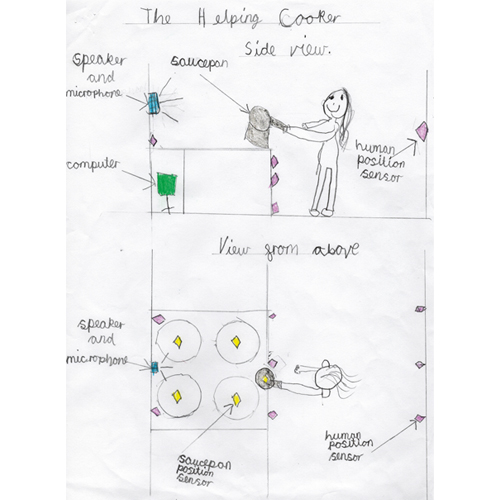 The Helping Cooker
Side view.
speaker
and
microphone
saucepan
human
position
sensor
computer
View from above
speaker
and
microphone
saucepan
position
sensor
human
position
sensor